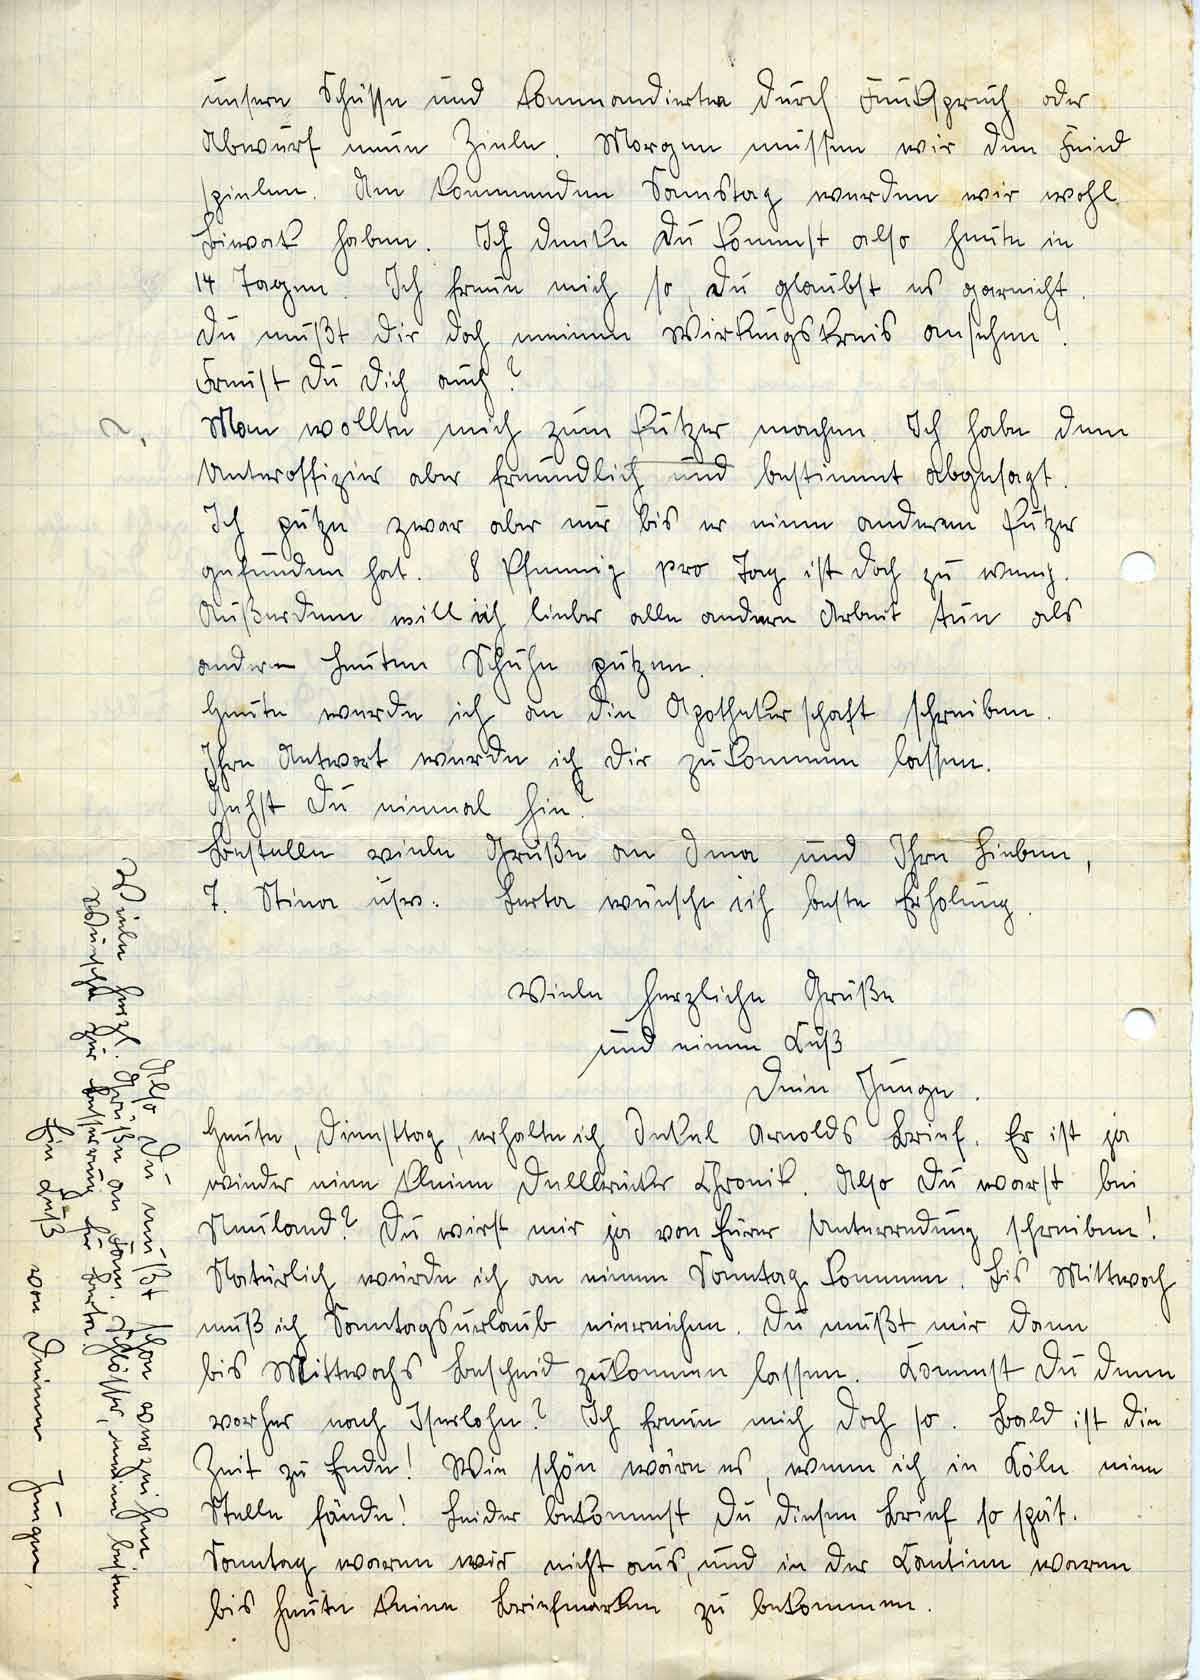 unsere Schüsse und kommandierten durch Funkspruch oder
Abwurf neue Ziele. Morgen müssen wir den Feind
spielen. Am kommenden Samstag werden wir wohl
Biwak haben. Ich denke Du kommst also heute in
14 Tagen. Ich freue mich so, Du glaubst es garnicht.
Du mußt Dir doch meinen Wirkungskreis ansehen!
Freust Du Dich auch?
Man wollte mich zum Putzer machen. Ich habe dem
Unteroffizier aber freundlich und bestimmt abgesagt.
Ich putze zwar aber nur bis er einen anderen Putzer
gefunden hat. 8 Pfennig pro Tag ist doch zu wenig.
Außerdem will ich lieber alle andere Arbeit tun als
andern Leuten Schuhe putzen.
Heute werde ich an die Apothekerschaft schreiben.
Ihre Antwort werde ich Dir zukommen lassen.
Gehst Du einmal hin?
Bestelle viele Grüße an Oma und Ihre Lieben,
T. Stina usw. Berta wünsche ich beste Erholung.
Viele herzliche Grüße
und einen Kuß
Dein Junge.
Heute, Dienstag, erhalte ich Onkel Arnolds Brief. Er ist ja
wieder eine kleine Dellbrücker Chronik. Also Du warst bei
Neuland? Du wirst mir ja von Eurer Unterredung schreiben!
Natürlich würde ich an einem Sonntag kommen. Bis Mittwoch
muß ich Sonntagsurlaub einreichen. Du mußt mir dann
bis Mittwochs Bescheid zukommen lassen. Kommst Du denn
vorher nach Iserlohn? Ich freue mich doch so. Bald ist die
Zeit zu Ende! Wie schön wäre es, wenn ich in Köln eine
Stelle fände! Leider bekommst Du diesen Brief so spät.
Sonntag waren wir nicht aus, und in der Kantine waren
bis heute keine Briefmarken zu bekommen.
Also Du mußt schon verzeihen
Viele herzl. Grüße an Fam. Schlösser, meine besten
Wünsche zur Besserung für Berta
Ein Kuß von Deinem Jungen.
2.